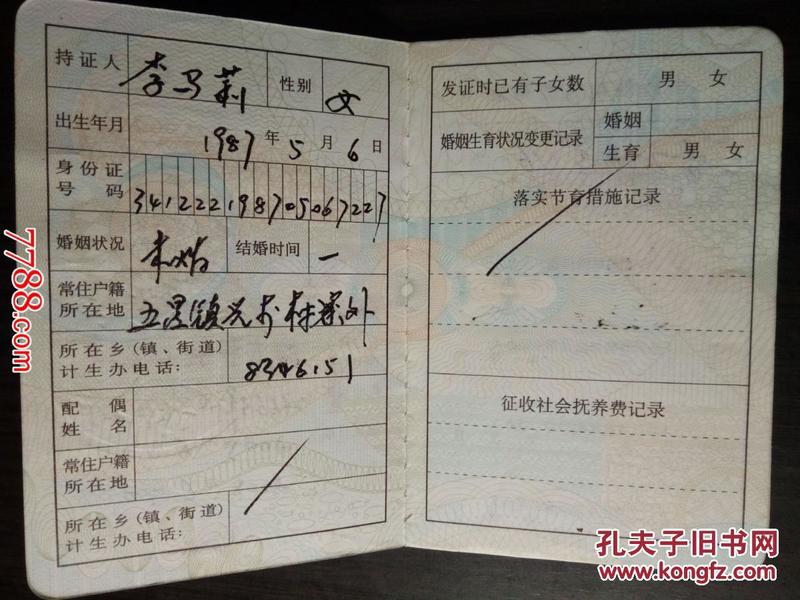 持证人 李马莉 性别 女
出生年月 1987 年 5 月 6 日
身份证
号码 341222198705067227
婚姻状况 未婚 结婚时间 一
常住户籍
所在地 五里镇
所在乡(镇、街道)
计生办电话: 8346151
配偶
姓名
常住户籍
所在地
所在乡(镇、街道)
计生办电话:
发证时已有子女数 男 女
婚姻生育状况变更记录 婚姻
生育 男 女
落实节育措施记录
征收社会抚养费记录
7788.com
孔夫子旧书网
www.kongfz.com